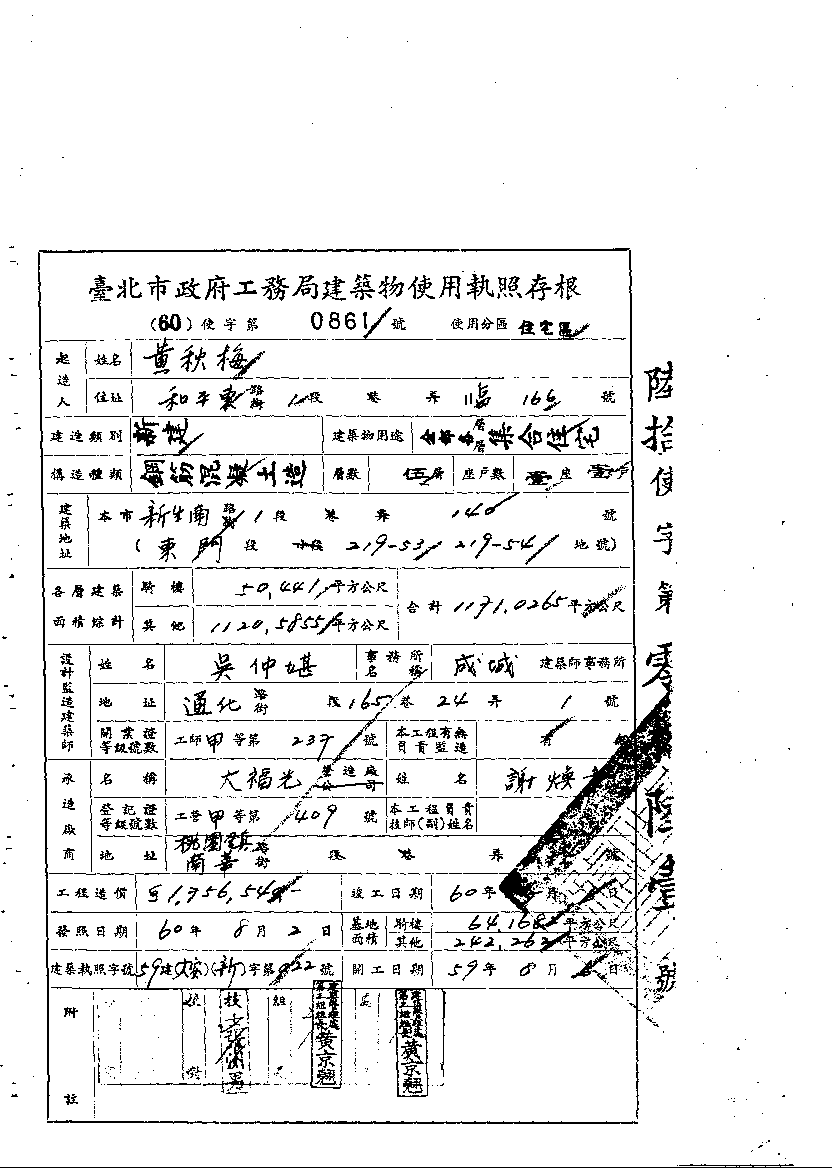 臺北市政府工務局建築物使用執照存根
(60)使字第 0861 號 使用分區 住宅區
起造人 姓名 黃秋梅
住址 和平東路街 1段 巷 弄 臨 166 號
建造類別 新建 建築物用途 全部各層層集合住宅
構造種類 鋼筋混凝土造 層數 伍層 座戶數 壹座 壹戶
建築地址 本市 新生南路街 1段 巷 弄 140 號
(東門 段 小段 219-53 219-54 地號)
各層建築面積綜計 騎樓 50.441 平方公尺 合計 1171.0265 平方公尺
其他 1120.5855 平方公尺
設計監造建築師 姓名 吳仲堪 事務所名稱 成城 建築師事務所
地址 通化路街 段 165 巷 24 弄 1 號
開業證等級號數 工師甲等第 237 號 本工程有無負責監造 有
承造廠商 名稱 大福光 營造廠公司 姓名 謝煥
登記證等級號數 工營甲等第 409 號 本工程負責技師(副)姓名
地址 桃園鎮南華路街 段 巷 弄 號
工程造價 竣工日期 60年 月 日
發照日期 60年 8月 2日 基地面積 騎樓 64.168 平方公尺
其他 242.262 平方公尺
建築執照字號 59建(大安)(新)字第 022 號 開工日期 59年 8月 日
附註
黃京翹
黃京翹
陸拾使字第零 陸壹號